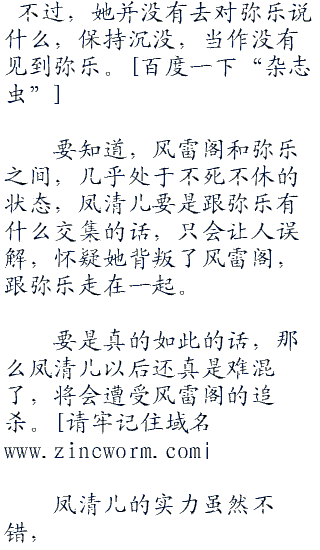 不过，她并没有去对弥乐说
什么，保持沉没，当作没有
见到弥乐。[百度一下“杂志
虫”]
要知道，风雷阁和弥乐
之间，几乎处于不死不休的
状态，凤清儿要是跟弥乐有
什么交集的话，只会让人误
解，怀疑她背叛了风雷阁，
跟弥乐走在一起。
要是真的如此的话，那
么凤清儿以后还真是难混
了，将会遭受风雷阁的追
杀。[请牢记住域名
www.zincworm.com¡
凤清儿的实力虽然不
错，